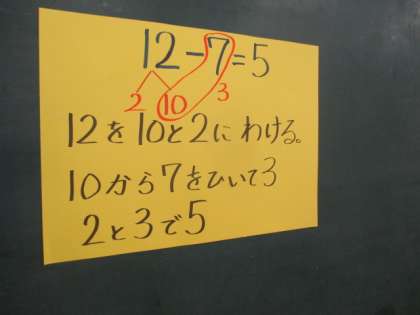 12-7=5
2 10 3
12を10と2にわける。
10から7をひいて3
2と3で5